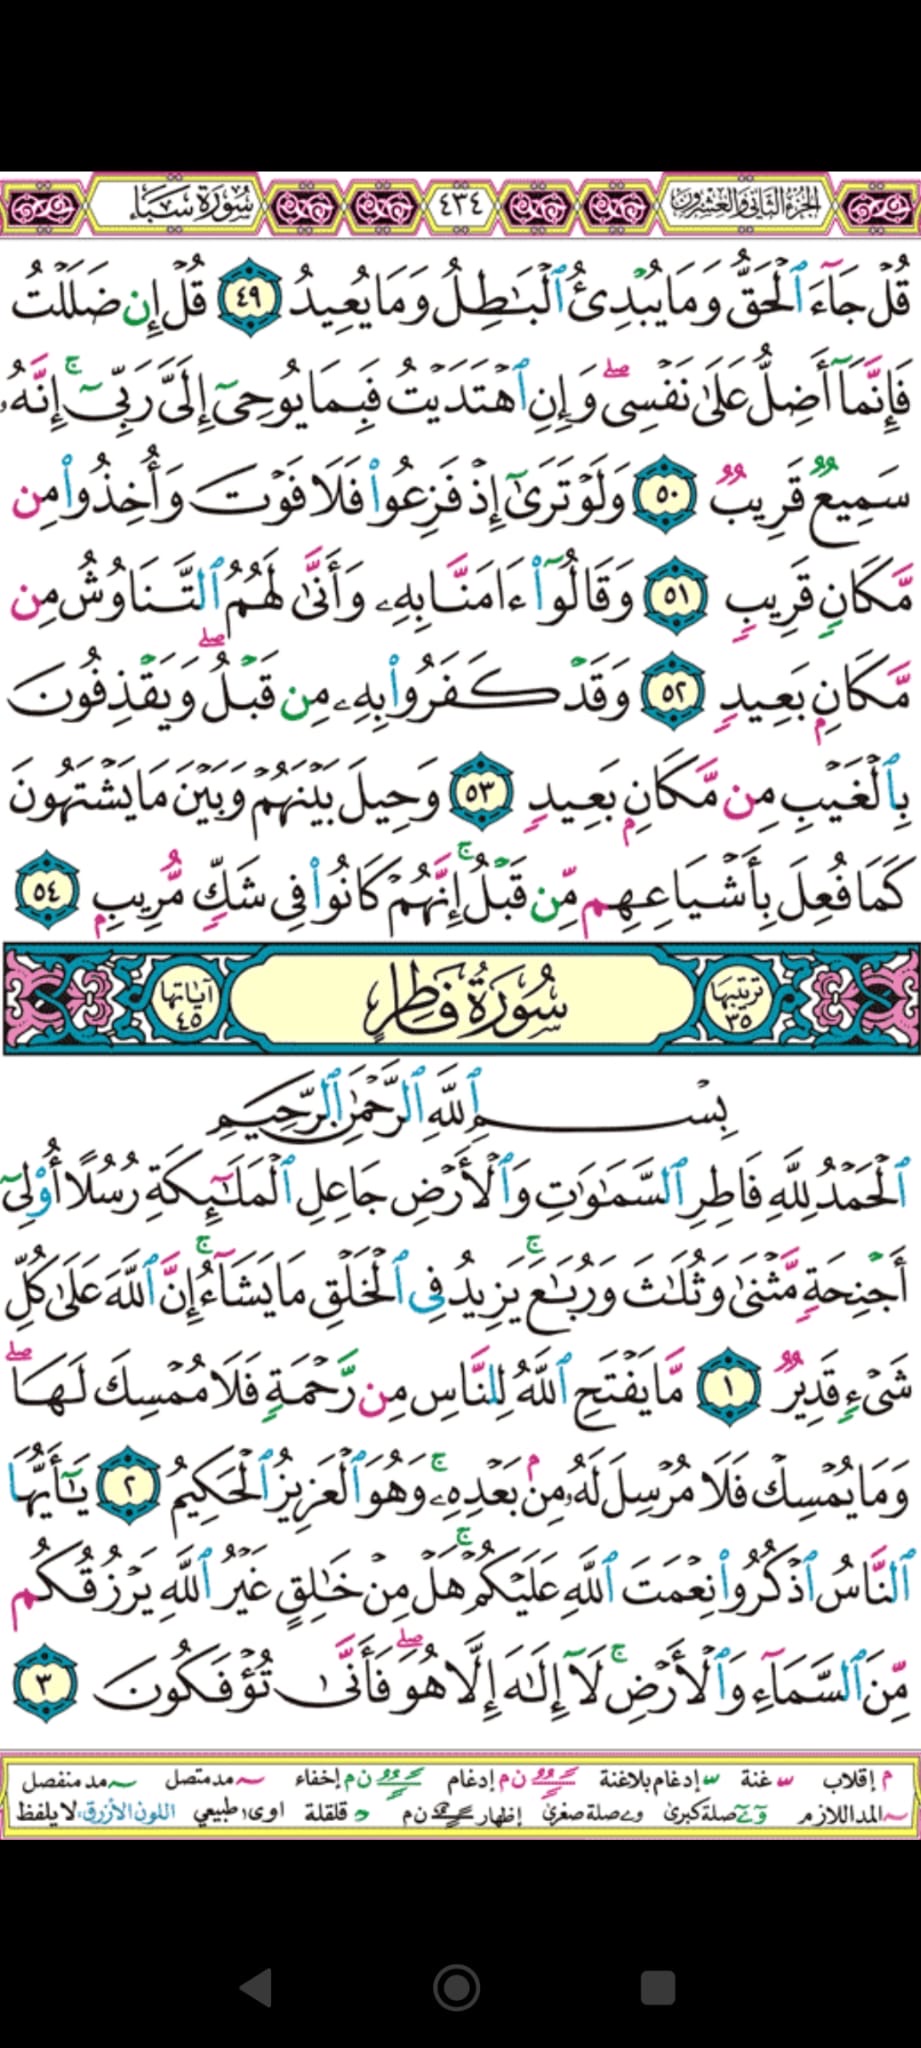 الجزء الثاني والعشرون ٤٣٤ سُورَةُ سَبَإٍ
قُلْ جَآءَ ٱلْحَقُّ وَمَا يُبْدِئُ ٱلْبَـٰطِلُ وَمَا يُعِيدُ ٤٩ قُلْ إِن ضَلَلْتُ
فَإِنَّمَآ أَضِلُّ عَلَىٰ نَفْسِى ۖ وَإِنِ ٱهْتَدَيْتُ فَبِمَا يُوحِىٓ إِلَىَّ رَبِّىٓ ۚ إِنَّهُۥ
سَمِيعٌ قَرِيبٌ ٥٠ وَلَوْ تَرَىٰٓ إِذْ فَزِعُوا۟ فَلَا فَوْتَ وَأُخِذُوا۟ مِن
مَّكَانٍ قَرِيبٍ ٥١ وَقَالُوٓا۟ ءَامَنَّا بِهِۦ وَأَنَّىٰ لَهُمُ ٱلتَّنَاوُشُ مِن
مَّكَانٍۭ بَعِيدٍ ٥٢ وَقَدْ كَفَرُوا۟ بِهِۦ مِن قَبْلُ ۖ وَيَقْذِفُونَ
بِٱلْغَيْبِ مِن مَّكَانٍۭ بَعِيدٍ ٥٣ وَحِيلَ بَيْنَهُمْ وَبَيْنَ مَا يَشْتَهُونَ
كَمَا فُعِلَ بِأَشْيَاعِهِم مِّن قَبْلُ ۚ إِنَّهُمْ كَانُوا۟ فِى شَكٍّ مُّرِيبٍۭ ٥٤
ترتيبها ٣٥ سُورَةُ فَاطِرٍ آياتها ٤٥
بِسْمِ ٱللَّهِ ٱلرَّحْمَـٰنِ ٱلرَّحِيمِ
ٱلْحَمْدُ لِلَّهِ فَاطِرِ ٱلسَّمَـٰوَٰتِ وَٱلْأَرْضِ جَاعِلِ ٱلْمَلَـٰٓئِكَةِ رُسُلًا أُو۟لِىٓ
أَجْنِحَةٍ مَّثْنَىٰ وَثُلَـٰثَ وَرُبَـٰعَ ۚ يَزِيدُ فِى ٱلْخَلْقِ مَا يَشَآءُ ۚ إِنَّ ٱللَّهَ عَلَىٰ كُلِّ
شَىْءٍ قَدِيرٌ ١ مَّا يَفْتَحِ ٱللَّهُ لِلنَّاسِ مِن رَّحْمَةٍ فَلَا مُمْسِكَ لَهَا ۖ
وَمَا يُمْسِكْ فَلَا مُرْسِلَ لَهُۥ مِنۢ بَعْدِهِۦ ۚ وَهُوَ ٱلْعَزِيزُ ٱلْحَكِيمُ ٢ يَـٰٓأَيُّهَا
ٱلنَّاسُ ٱذْكُرُوا۟ نِعْمَتَ ٱللَّهِ عَلَيْكُمْ ۚ هَلْ مِنْ خَـٰلِقٍ غَيْرُ ٱللَّهِ يَرْزُقُكُم
مِّنَ ٱلسَّمَآءِ وَٱلْأَرْضِ ۚ لَآ إِلَـٰهَ إِلَّا هُوَ ۖ فَأَنَّىٰ تُؤْفَكُونَ ٣
م إقلاب غنة إدغام بلاغنة ن م إدغام ن م إخفاء مد متصل مد منفصل
المد اللازم صلة كبرى صلة صغرى إظهار ن م قلقلة اوى طبيعي اللون الأزرق: لا يلفظ